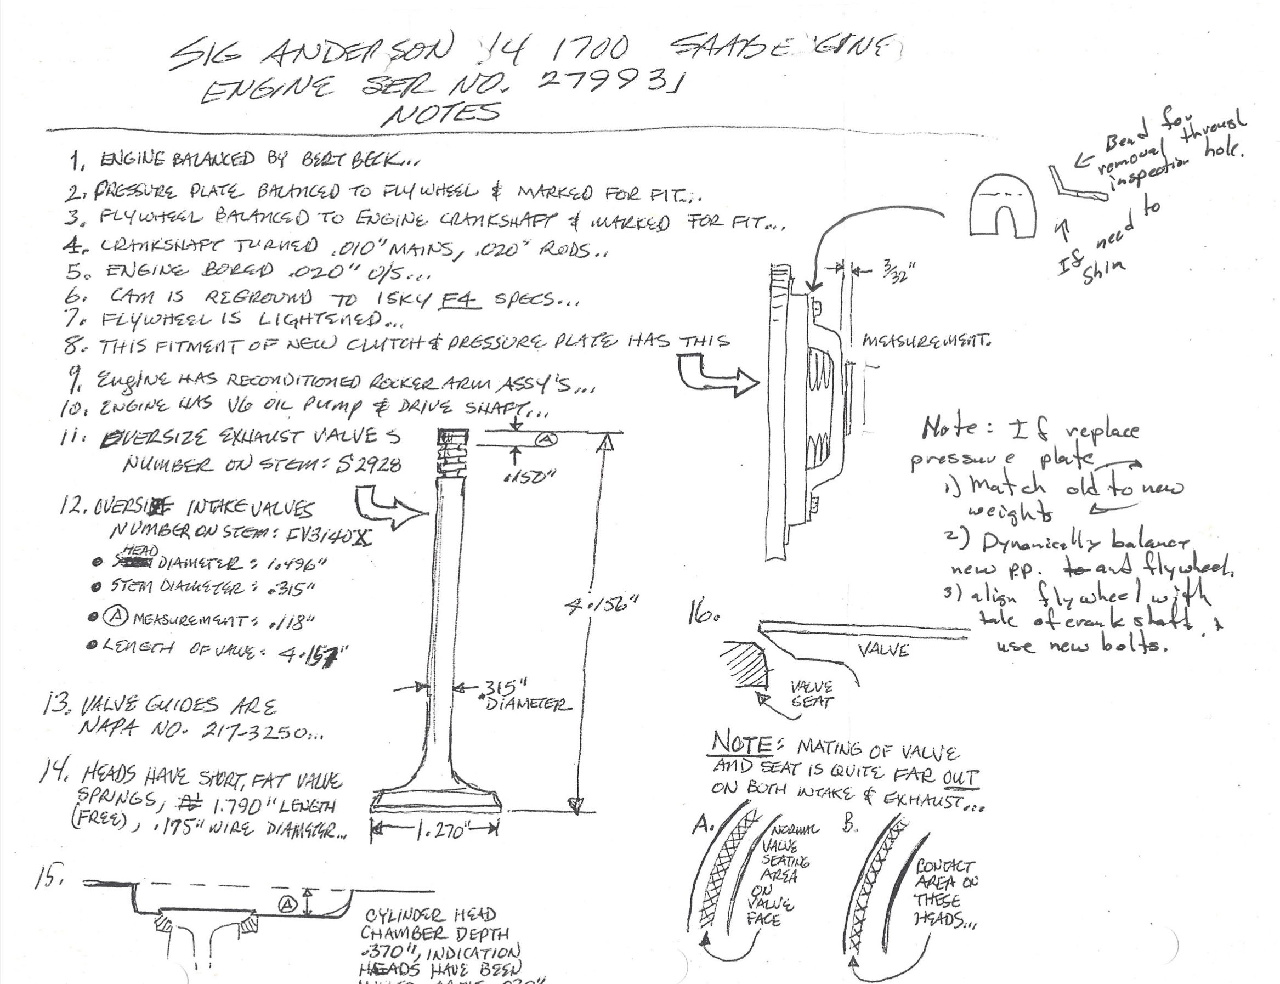 SIG ANDERSON 1700 SAAB ENGINE
ENGINE SER NO. 279931
NOTES
1. ENGINE BALANCED BY BERT BECK...
2. PRESSURE PLATE BALANCED TO FLYWHEEL & MARKED FOR FIT...
3. FLYWHEEL BALANCED TO ENGINE CRANKSHAFT & MARKED FOR FIT...
4. CRANKSHAFT TURNED .010" MAINS, .020" RODS..
5. ENGINE BORED .020" O/S...
6. CAM IS REGROUND TO ISKY F4 SPECS...
7. FLYWHEEL IS LIGHTENED...
8. THIS FITMENT OF NEW CLUTCH & PRESSURE PLATE HAS THIS
3/32"
MEASUREMENT.
Bend for
removal through
inspection hole.
If need to
shim
9. ENGINE HAS RECONDITIONED ROCKER ARM ASSY'S...
10. ENGINE HAS V6 OIL PUMP & DRIVE SHAFT...
11. OVERSIZE EXHAUST VALVES
NUMBER ON STEM: S2928
A
.150"
4.156"
.315"
DIAMETER
1.270"
12. OVERSIZE INTAKE VALVES
NUMBER ON STEM: EV3140X
• HEAD DIAMETER: 1.496"
• STEM DIAMETER: .315"
• A MEASUREMENT: .118"
• LENGTH OF VALVE: 4.157"
13. VALVE GUIDES ARE
NAPA NO. 217-3250...
14. HEADS HAVE SHORT, FAT VALVE
SPRINGS, 1.790" LENGTH
(FREE), .175" WIRE DIAMETER...
15.
A
CYLINDER HEAD
CHAMBER DEPTH
.370", INDICATION
HEADS HAVE BEEN
Note: If replace
pressure plate
1) Match old to new
weights
2) Dynamically balance
new p.p. and flywheel.
3) align flywheel with
tale of crankshaft &
use new bolts.
16.
VALVE
VALVE
SEAT
NOTE: MATING OF VALVE
AND SEAT IS QUITE FAR OUT
ON BOTH INTAKE & EXHAUST...
A.
NORMAL
VALVE
SEATING
AREA
ON
VALVE
FACE
B.
CONTACT
AREA ON
THESE
HEADS...